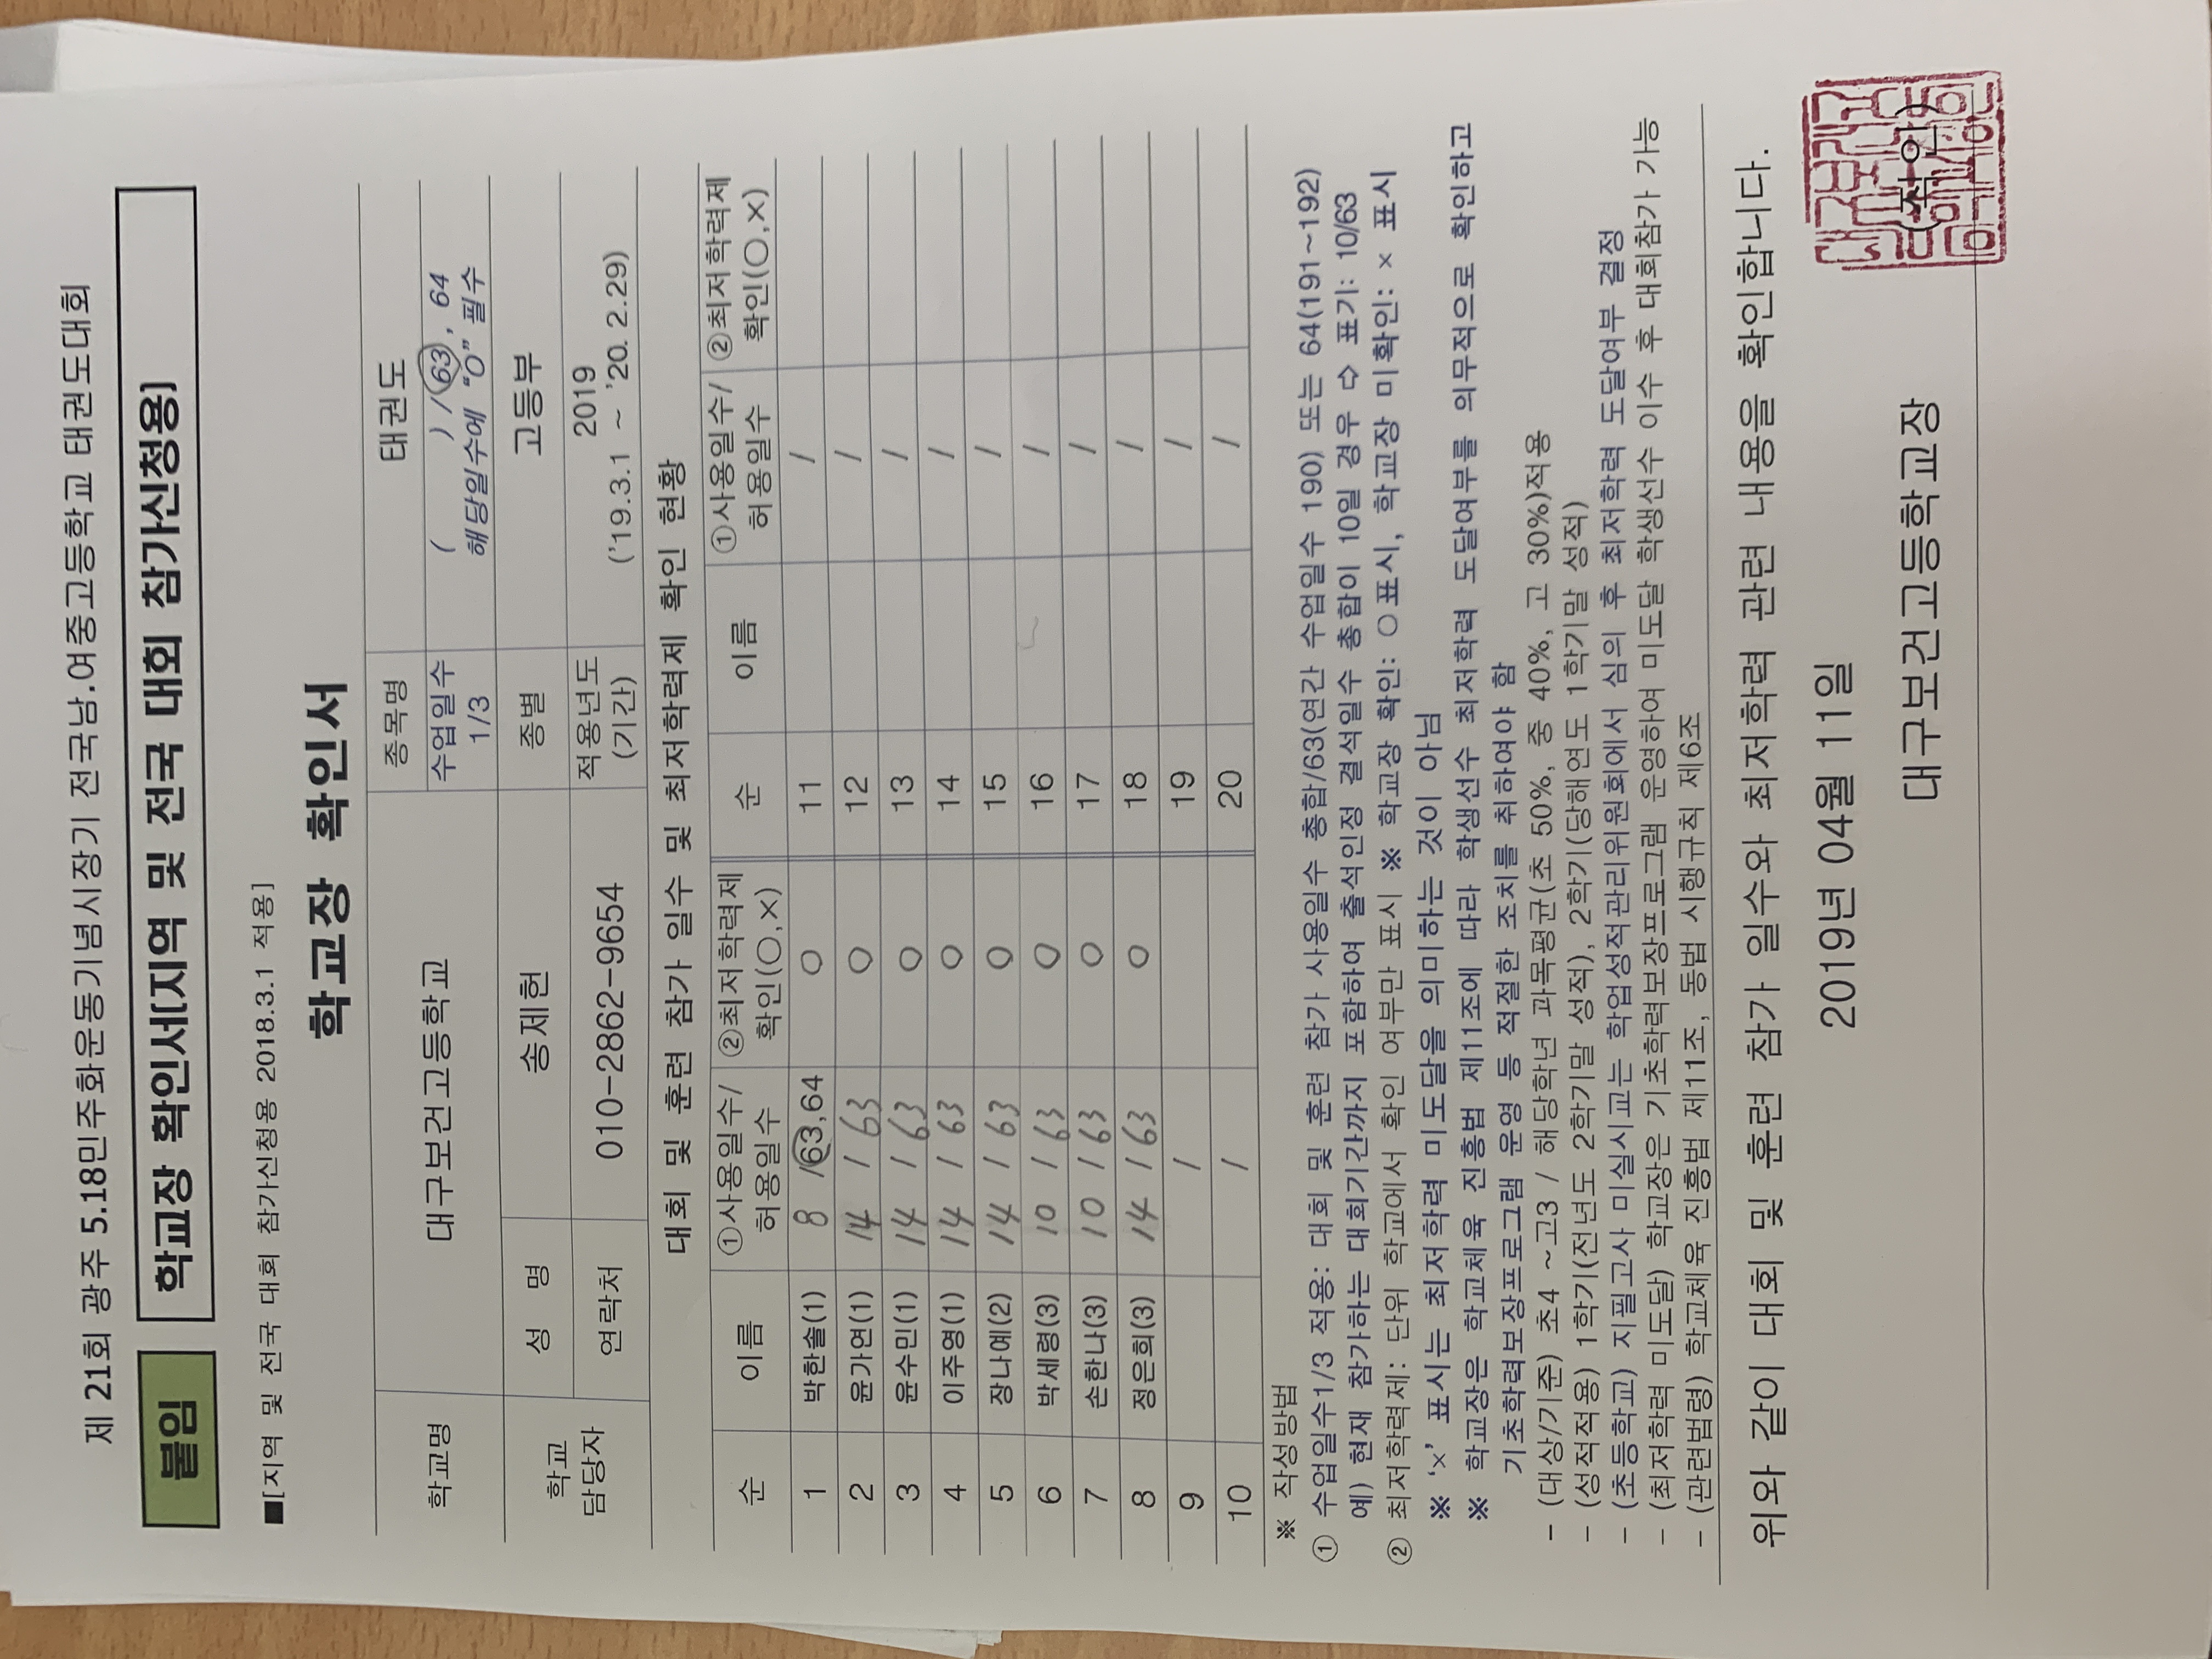 제 21회 광주 5.18민주화운동기념시장기 전국남.여중고등학교 태권도대회
붙임 학교장 확인서(지역 및 전국 대회 참가신청용)
■[지역 및 전국 대회 참가신청용 2018.3.1 적용]
학교장 확인서
학교명 대구보건고등학교 종목명 태권도
수업일수 1/3 ( ) / 63, 64
해당일수에 "O" 필수
학교 담당자 성 명 송제헌 종별 고등부
연락처 010-2862-9654 적용년도 (기간) 2019
('19.3.1 ~ '20. 2.29)
대회 및 훈련 참가 일수 및 최저학력제 확인 현황
순 이름 ①사용일수/허용일수 ②최저학력제 확인(○,×) 순 이름 ①사용일수/허용일수 ②최저학력제 확인(○,×)
1 박한솔(1) 8 /63,64 ○ 11 /
2 윤가연(1) 14 / 63 ○ 12 /
3 윤수민(1) 14 / 63 ○ 13 /
4 이주영(1) 14 / 63 ○ 14 /
5 장나예(2) 14 / 63 ○ 15 /
6 박세령(3) 10 / 63 ○ 16 /
7 손한나(3) 10 / 63 ○ 17 /
8 정은희(3) 14 / 63 ○ 18 /
9 / 19 /
10 / 20 /
※ 작성방법
① 수업일수1/3 적용: 대회 및 훈련 참가 사용일수 총합/63(연간 수업일수 190) 또는 64(191~192)
예) 현재 참가하는 대회기간까지 포함하여 출석인정 결석일수 총합이 10일 경우 ⇨ 표기: 10/63
② 최저학력제: 단위 학교에서 확인 여부만 표시 ※ 학교장 확인: ○표시, 학교장 미확인: × 표시
※ '×' 표시는 최저학력 미도달을 의미하는 것이 아님
※ 학교장은 학교체육 진흥법 제11조에 따라 학생선수 최저학력 도달여부를 의무적으로 확인하고
기초학력보장프로그램 운영 등 적절한 조치를 취하여야 함
- (대상/기준) 초4 ~고3 / 해당학년 과목평균(초 50%, 중 40%, 고 30%)적용
- (성적적용) 1학기(전년도 2학기말 성적), 2학기(당해연도 1학기말 성적)
- (초등학교) 지필고사 미실시교는 학업성적관리위원회에서 심의 후 최저학력 도달여부 결정
- (최저학력 미도달) 학교장은 기초학력보장프로그램 운영하여 미도달 학생선수 이수 후 대회참가 가능
- (관련법령) 학교체육 진흥법 제11조, 동법 시행규칙 제6조
위와 같이 대회 및 훈련 참가 일수와 최저학력 관련 내용을 확인합니다.
2019년 04월 11일
대구보건고등학교장 (직인)